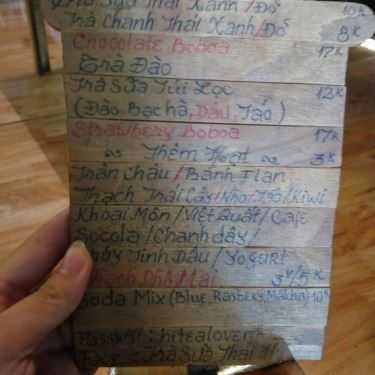 Trà Sữa Thái Xanh/Đỏ 10K
Trà Chanh Thái Xanh/Đỏ 8K
Chocolate Boboa 17K
Trà Đào
Trà Sữa Túi Lọc 12K
(Đào, Bạc hà, Dâu, Táo)
Strawbery Boboa 17K
~ Thêm Hạt ~ 3K
Trân Châu/Bánh Flan
Thạch Trái Cây/Nho/Táo/Kiwi
Khoai Môn/Việt Quất/Cafe
Socola/Chanh dây/
Dâu/YoGuRt
3K/5K
Soda Mix (Blue,
Pass Wifi: hitealover
Trà Sữa Thái